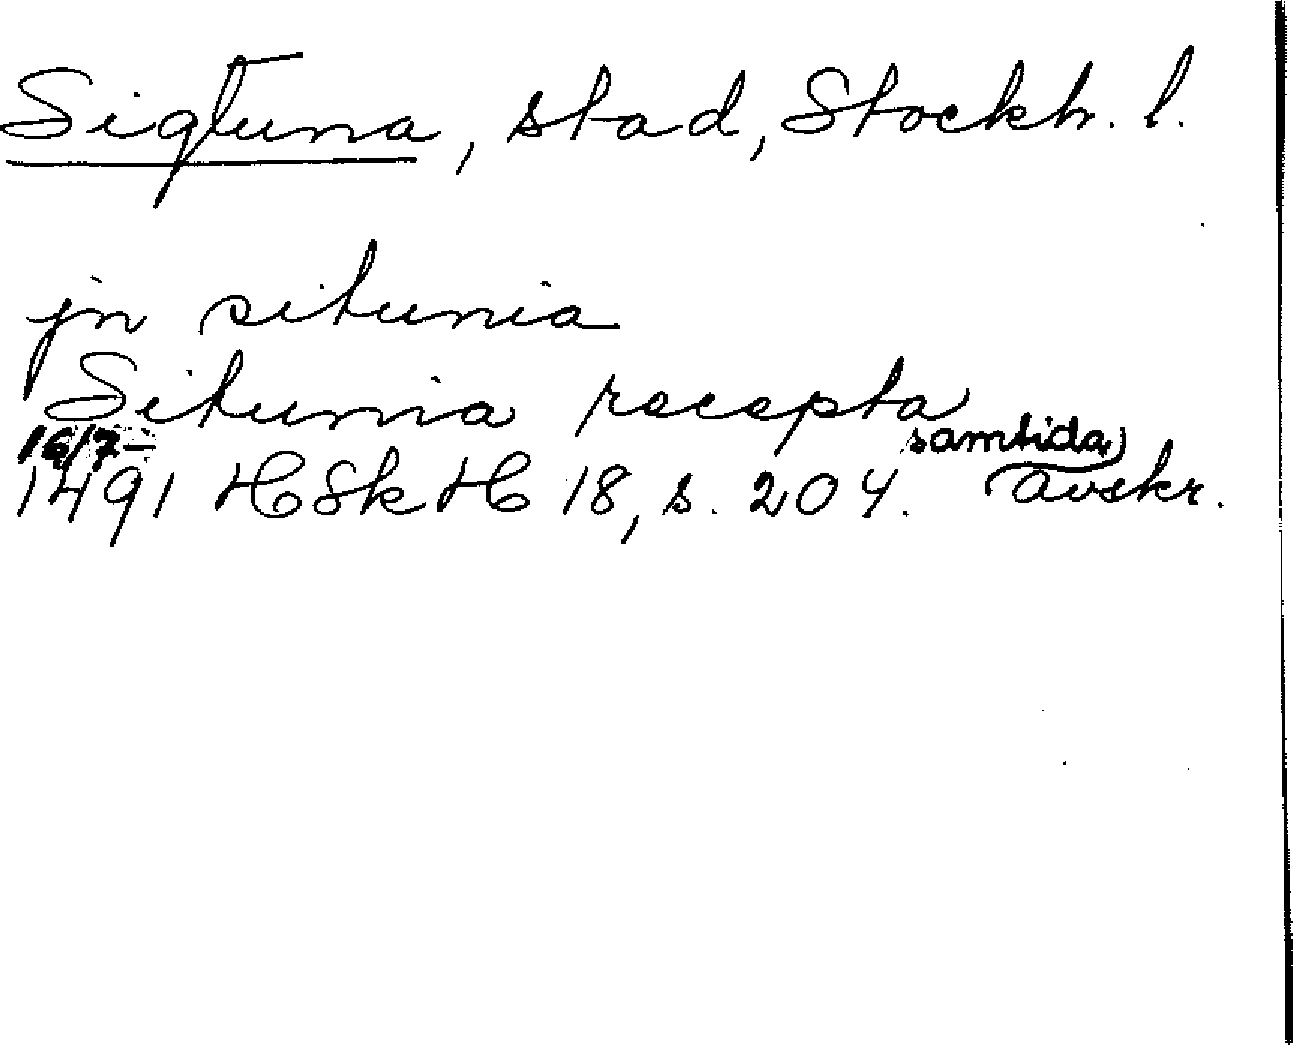 Sigtuna, stad, Stockh. l.
jn situnia
Situnia recepta
16/7 samtida
1491 HSkH 18, s. 204. avskr.